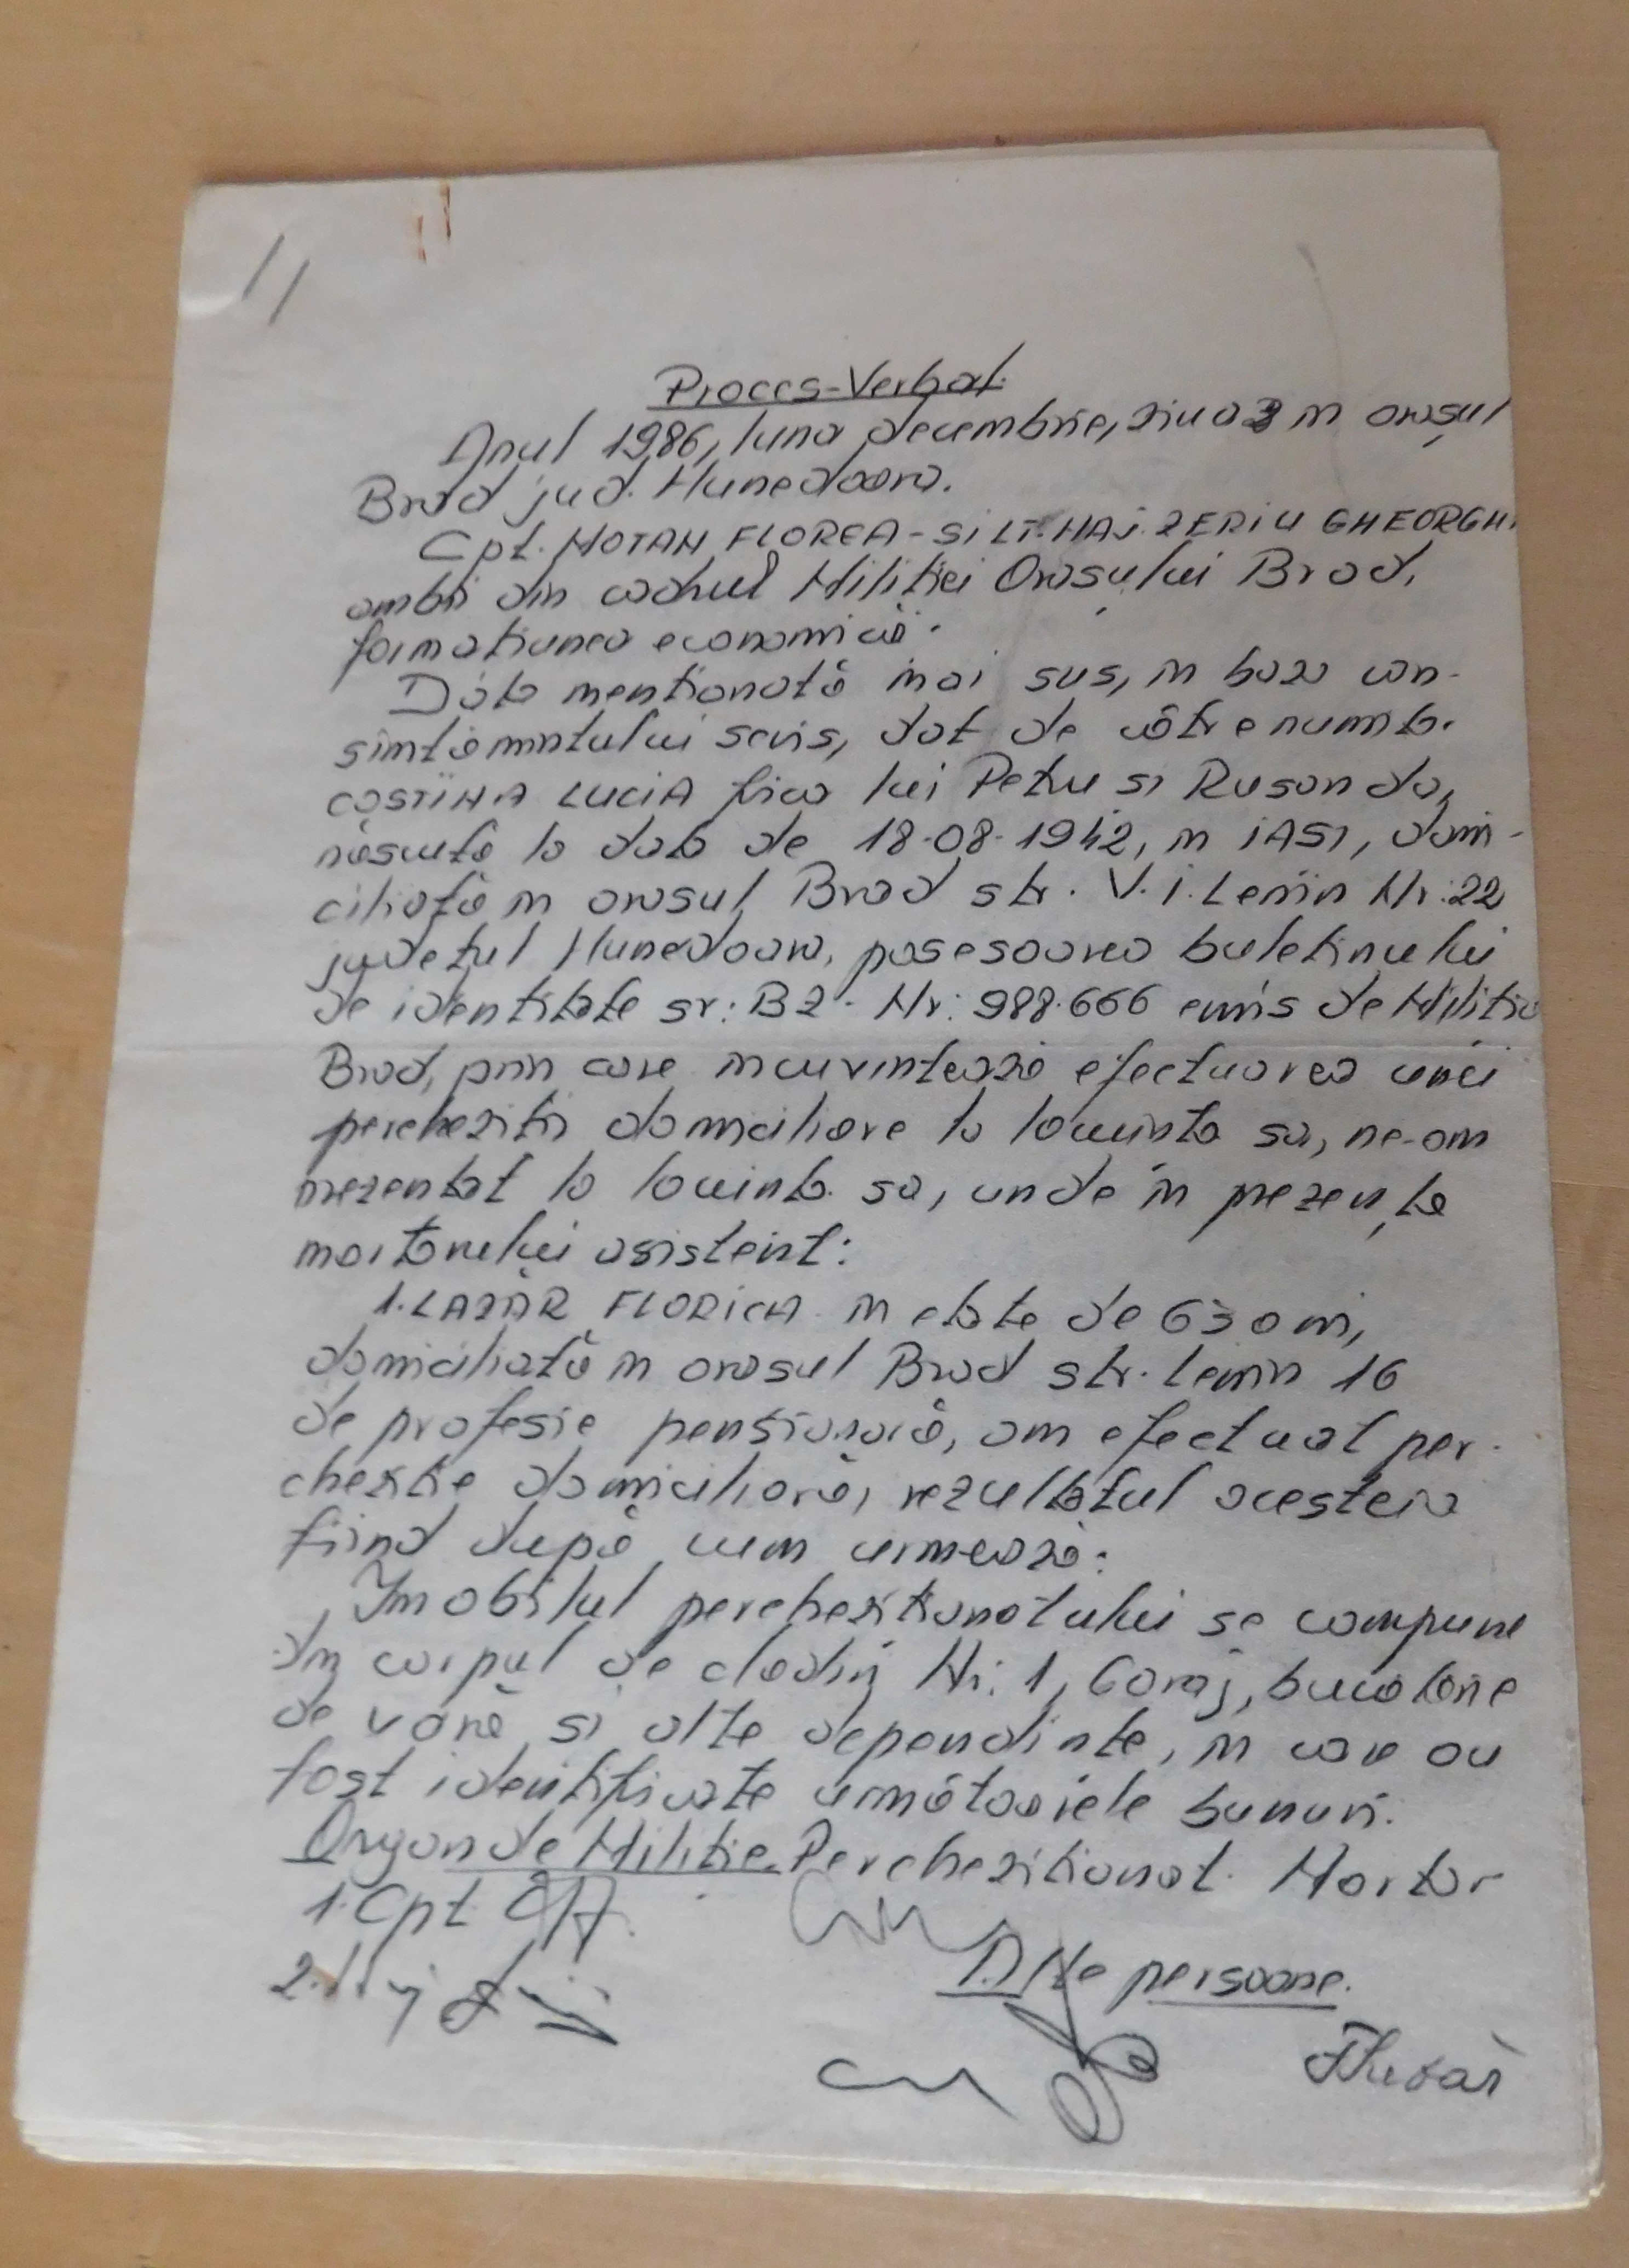 11
Proces-Verbal.
Anul 1986, luna decembrie, ziua 3 în orașul
Brad jud. Hunedoara.
Cpt. MOTAN FLOREA - SI LT. MAJ. ZERIU GHEORGHE
ambii din cadrul Miliției Orașului Brad,
formatiunea economică.
Data mentionată mai sus, în baza con-
simțămîntului scris, dat de către numita.
COSTINA LUCIA fica lui Petru si Rusanda,
născută la data de 18-08-1942, în IASI, domi-
ciliată în orasul Brad str. V.I. Lenin Nr: 22
judetul Hunedoara, posesoarea buletinului
de identitate sr: BZ - Nr: 988.666 emis de Militia
Brad, prin care încuvintează efectuarea unei
perchezitii domiciliare la locuinta sa, ne-am
prezentat la locuinta sa, unde în prezența
martorului asistent:
1. LAZĂR FLORICA în etate de 63 ani,
domiciliată în orasul Brad str. Lenin 16
de profesie pensionară, am efectuat per-
chezitie domiciliară, rezultatul acesteia
fiind după cum urmează:
Imobilul perchezitionatului se compune
din corpul de cladiri Nr: 1, Garaj, bucatarie
de vară si alte dependinte, în care au
fost identificate următoarele bunuri.
Organ de Militie. Perchezitionat. Martor
1. Cpt
2.
Alte persoane.